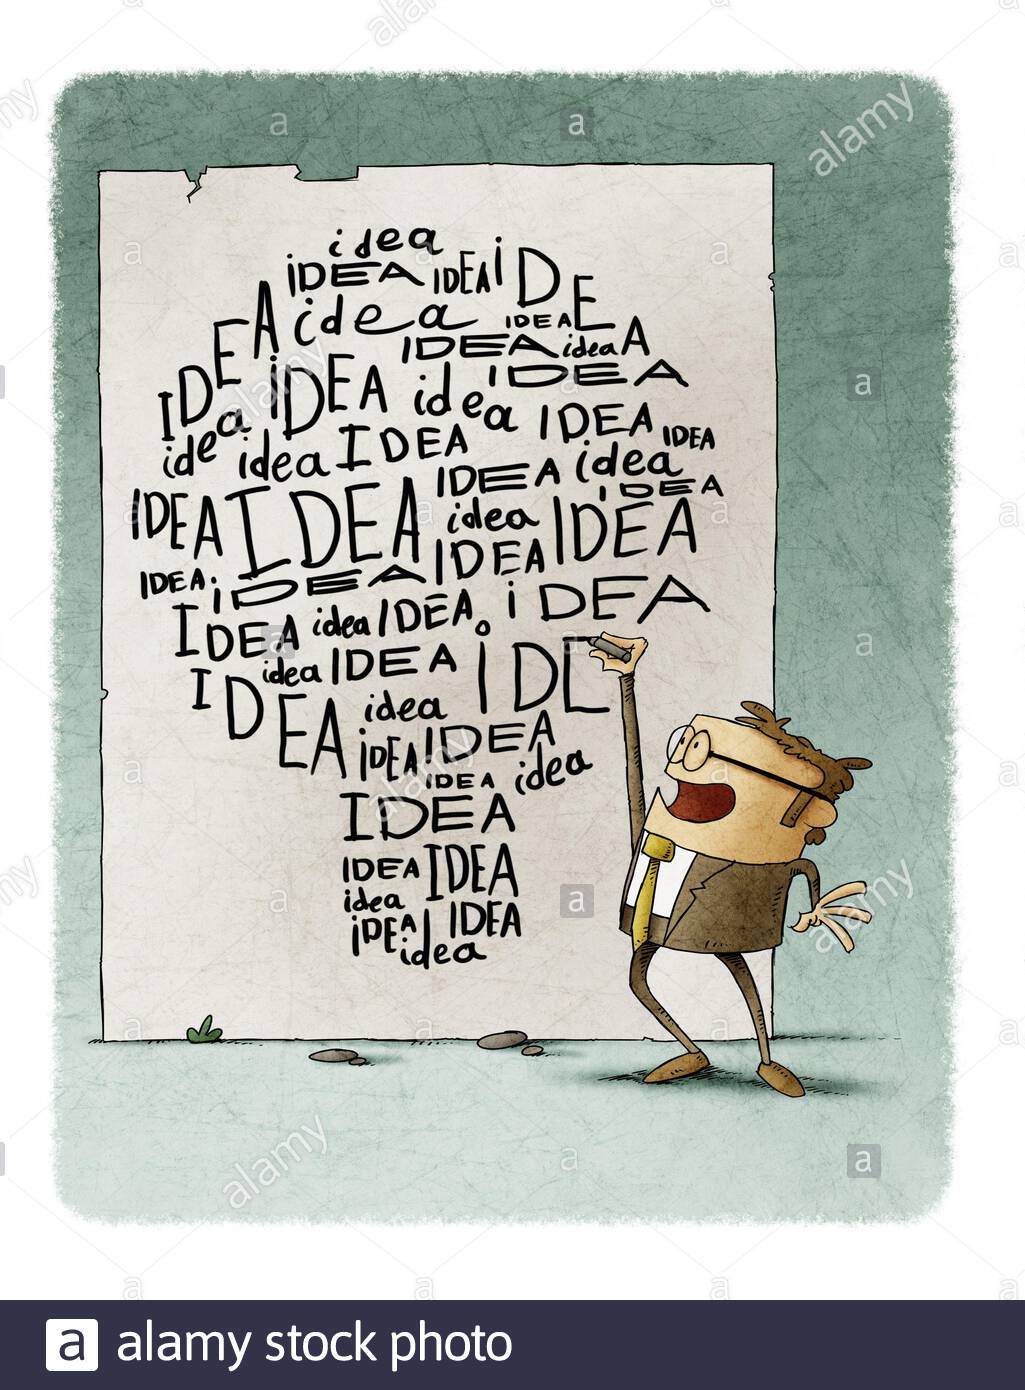 idea
IDEA IDEA iDE
IDEA idea IDEA A
IDEA idea
IDEA iDEA idea IDEA
idea idea IDEA IDEA IDEA
IDEA idea
IDEA IDEA idea IDEA IDEA
IDEA IDEA IDEA
IDEA idea IDEA iDEA
idea IDEA iDE
IDEA idea
iDEA IDEA
IDEA idea
IDEA
IDEA IDEA
idea
iDEA IDEA
idea
alamy
a alamy stock photo